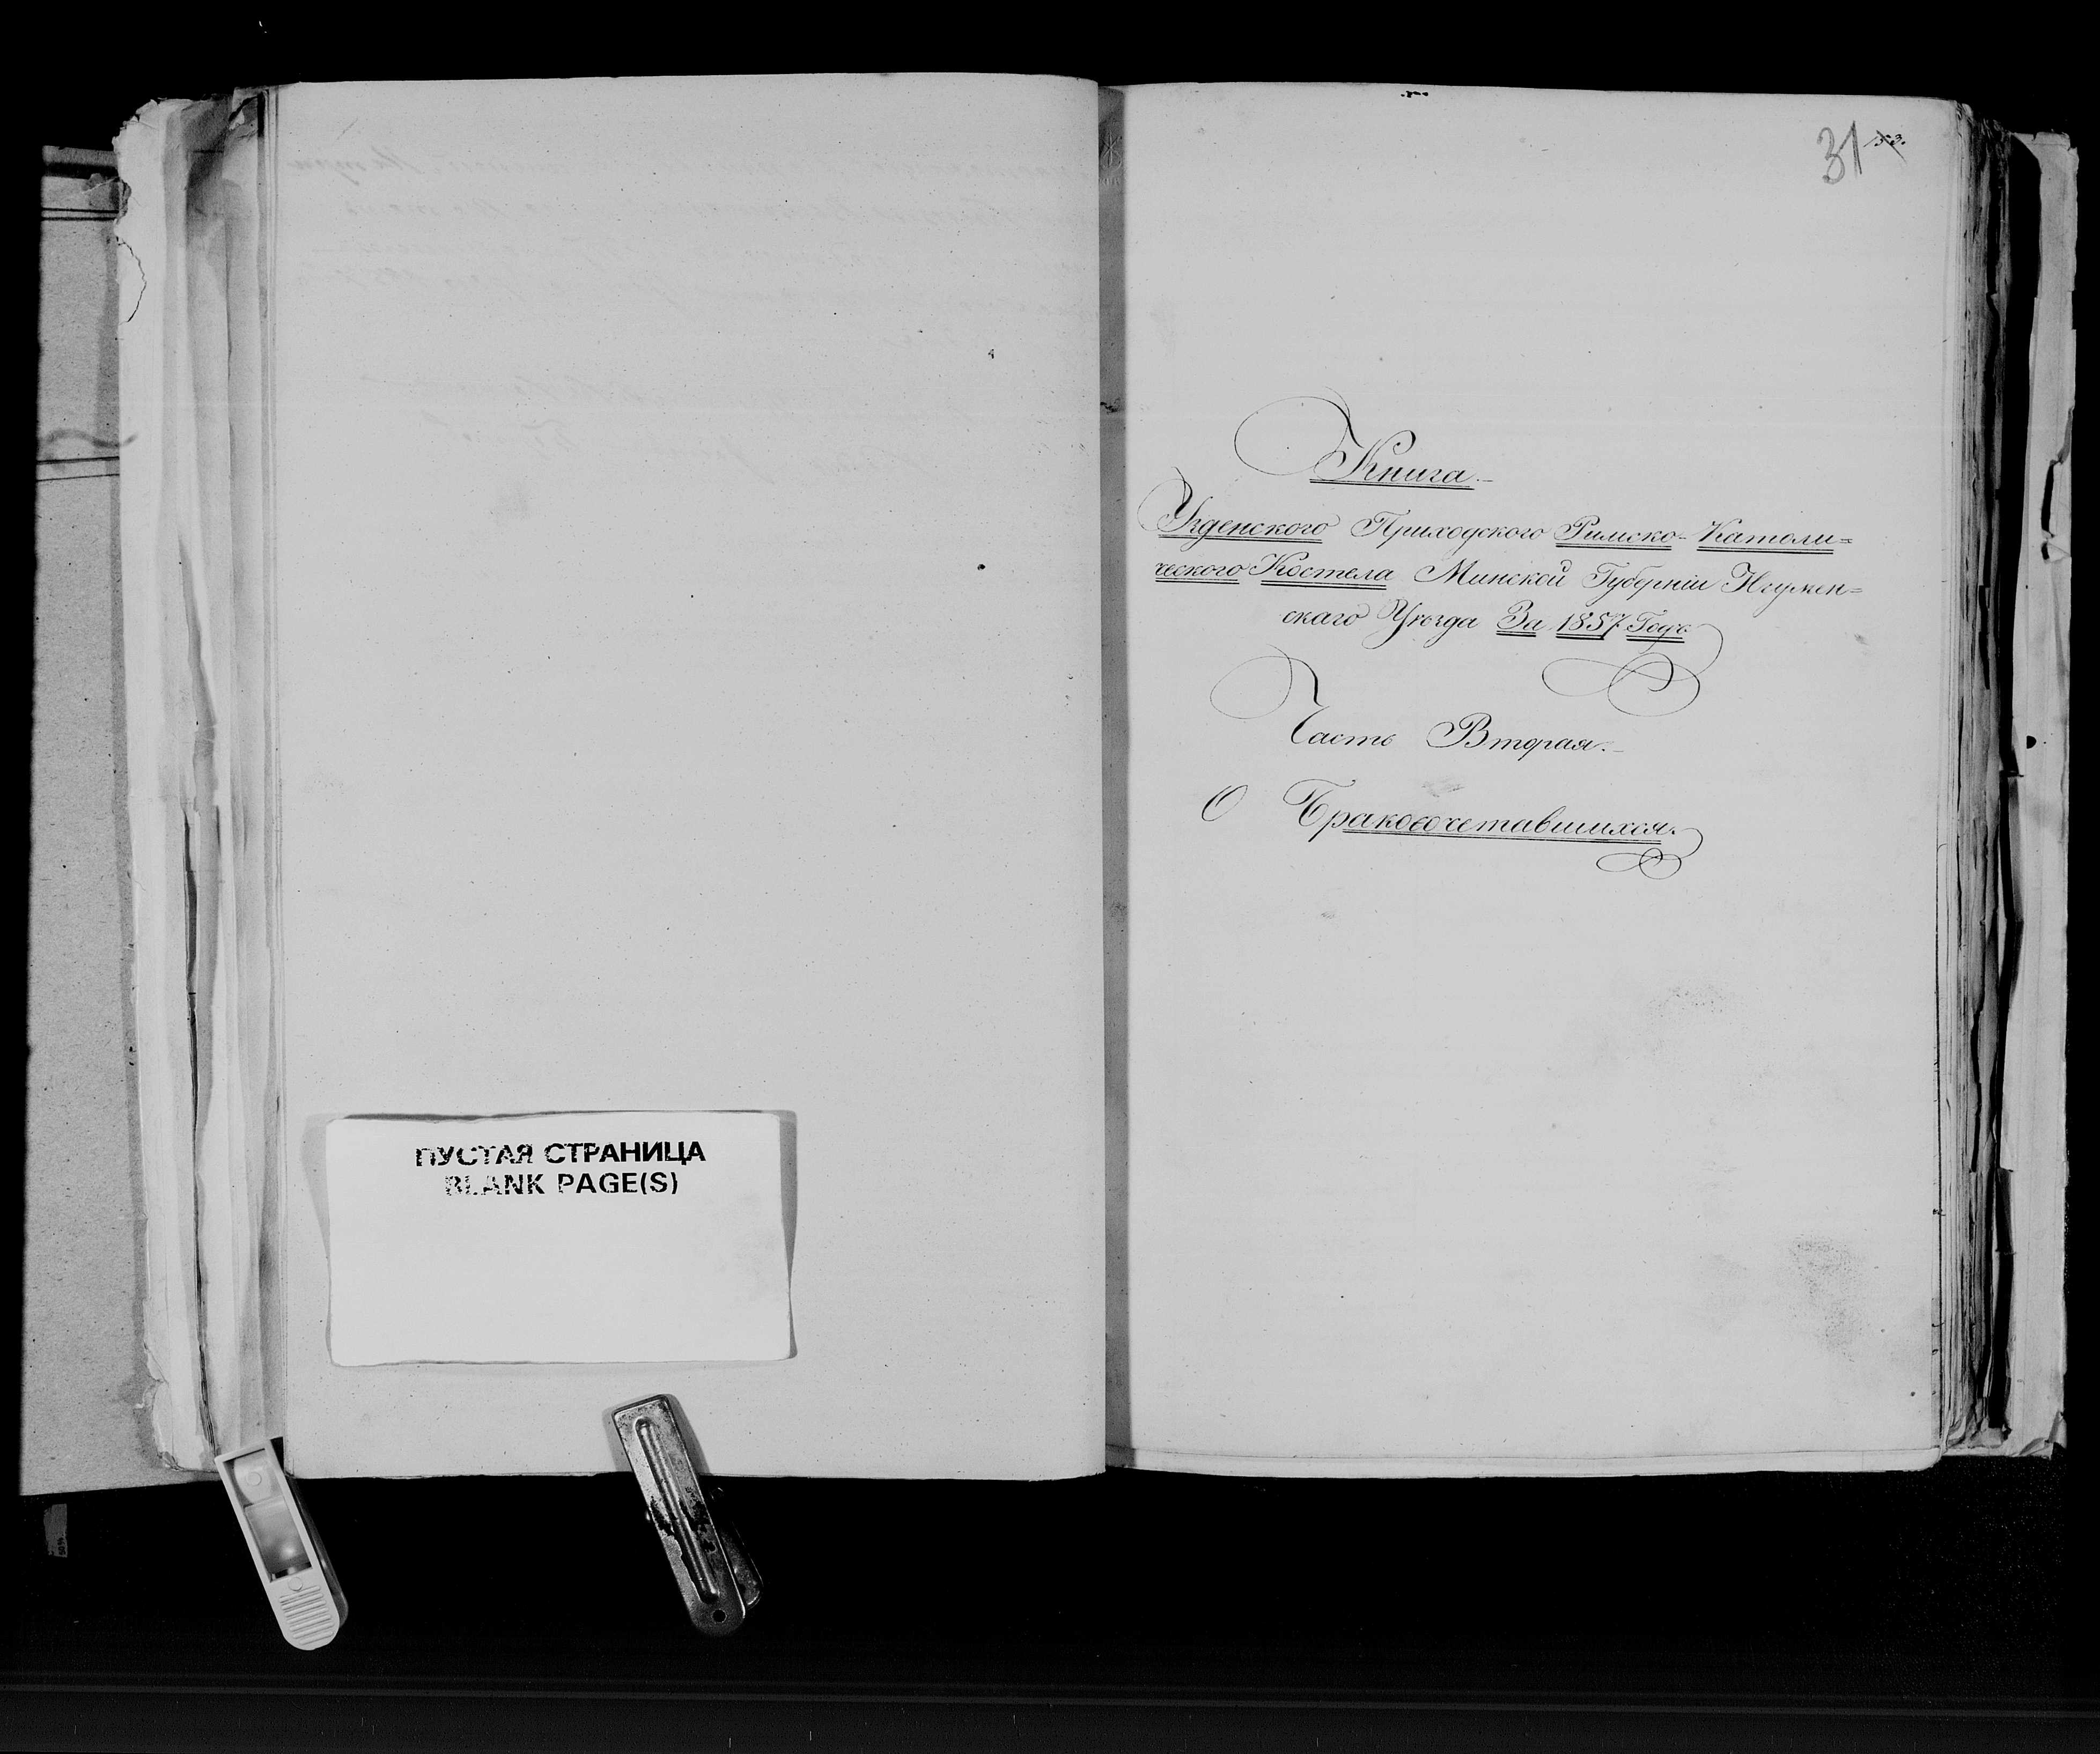 ПУСТАЯ СТРАНИЦА
BLANK PAGE(S)
31
Книга.
Узденского Приходского Римско-Католи=
ческого Костела Минской Губерніи Игумен=
скаго Уѣзда За 1857 Годъ
Часть Вторая.
О Бракосочетавшихся.